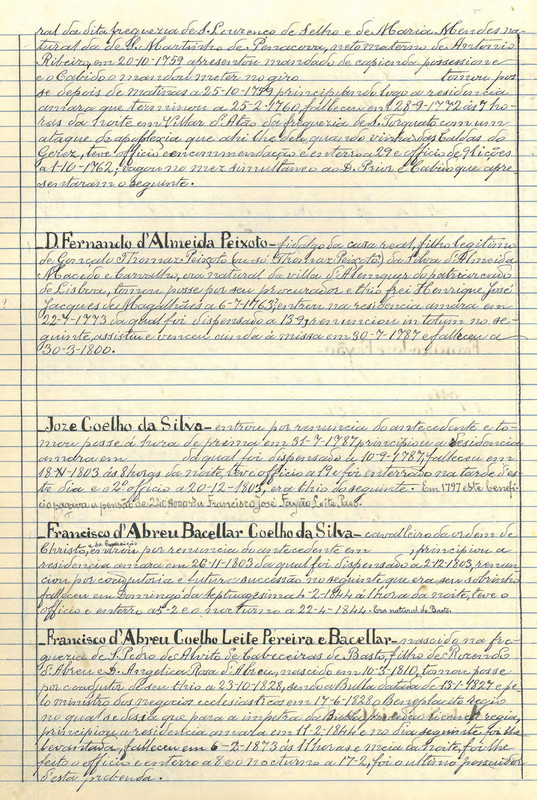 ral da dita freguezia de S. Lourenço de Selho e de Maria Mendes na-
tural da de S. Martinho de Penacova, neto materno de Antonio
Ribeiro, em 20-10-1759 apresentou mandado de capienda possessione
e o Cabido o mandou meter no giro tomou pos-
se depois de matinas a 25-10-1759 principiando logo a residencia
amara que terminou a 25-2-1760 falleceu em 28-9-1772 ás 7 ho-
ras da noite em Villar d'Atão da freguezia de S. Torquato com um
ataque de apoplexia que ali lhe deu, quando vinha das Caldas do
Gerez, teve officio e encommendação e enterro a 29 e officio de 9 lições
a 1-10-1762; vagou no mez simultaneo ao D. Prior e Cabido que apre-
sentaram o seguinte.
D. Fernando d'Almeida Peixoto- fidalgo da casa real, filho legitimo
de Gonçalo Thomaz Peixoto (ou só Thomaz Peixoto) da Silva d'Almeida
Macedo e Carvalho, era natural da villa d'Alenquer do patriarcado
de Lisboa, tomou posse por seu procurador e thio frei Henrique José
Jacques de Magalhães a 6-7-1763, entrou na residencia amara em
22-4-1773 da qual foi dispensado a 13-9, renunciou in totum no se-
guinte, assistiu e venceu ainda á missa em 30-7-1787 e falleceu a
30-3-1800.
Joze Coelho da Silva- entrou por renuncia do antecedente e to-
mou posse á hora de prima em 31-7-1787 principiou a residencia
amara em da qual foi dispensado a 10-9-1787, falleceu em
18-XI-1803 ás 8 horas da noite, teve officio a 19 e foi enterrado na tarde d'es-
te dia e o 2º officio a 20-12-1803, era thio do seguinte. Em 1797 este benefi-
cio pagava a pensão de a Francisco José Fayão Leite
Francisco d'Abreu Bacellar Coelho da Silva- cavalleiro da ordem de
Christo, entrou por renuncia do antecedente em , principiou a
residencia amara em 26-11-1803 da qual foi dispensado a 2-12-1803, renun-
ciou por coadjutoria e futura successão no seguinte que era seu sobrinho
falleceu em Domingo da Septuagesima 4-2-1844 á 1 hora da noite, teve o
officio e enterro a 5-2 e o nocturno a 22-4-1844. Era natural de Basto.
Francisco d'Abreu Coelho Leite Pereira e Bacellar- nascido na fre-
guezia de S. Pedro de Alvito de Cabeceiras de Basto, filho de Rozendo
d'Abreu e D. Angelica Rosa d'Abreu, nascido em 10-5-1810, tomou posse
por coadjutor de seu thio a 23-10-1828, sendo a Bulla datada de 13-1-1827 e pe-
lo ministro dos negocios ecclesiasticos em 17-6-1828 o Beneplacito regio
no qual se dissea que para a impetra da Bulla licença regia,
principiou a residencia amara em 11-2-1844 e no dia seguinte foi-lhe
levantada, falleceu em 6-2-1873 ás 11 horas e meia da noite, foi-lhe
feito o officio e enterro a 8 e o nocturno a 17-2, foi o ultimo possuidor
d'esta prebenda.